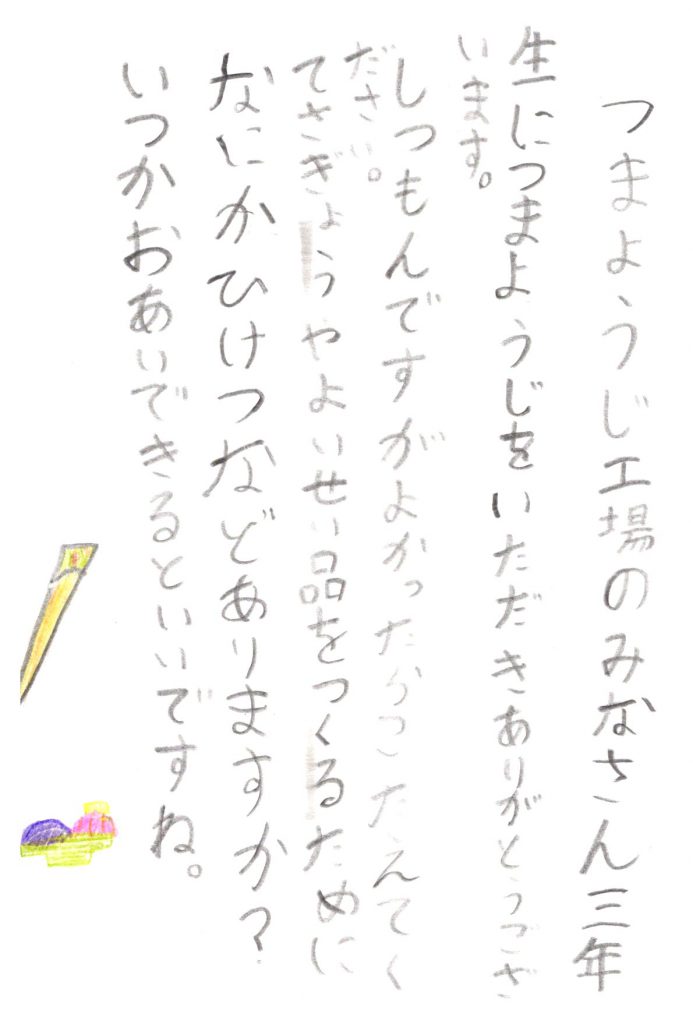 つまようじ工場のみなさん三年
生につまようじをいただきありがとうござ
います。
しつもんですがよかったらこたえてく
ださい。
てさぎょうやよいせい品をつくるために
なにかひけつなどありますか?
いつかおあいできるといいですね。